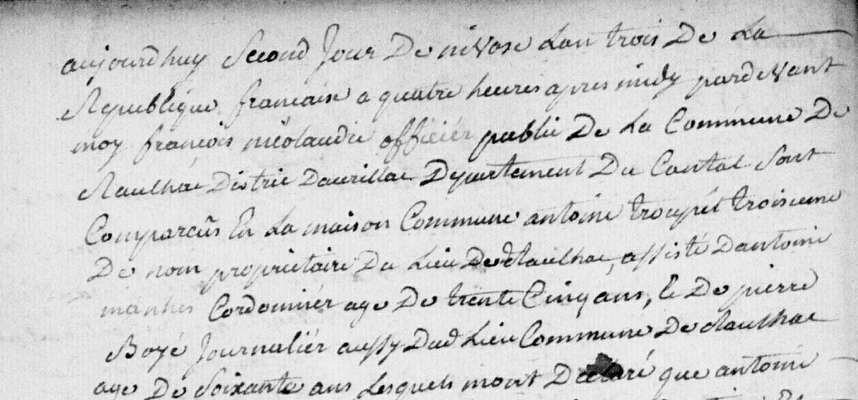 aujourdhuy Second Jour De nivose Lan trois De La
Republique francaise a quatre heures apres midy pardevant
moy francois nicolaudie officiér public De La Commune De
Raulhac District Daurillac Departement Du Cantal Sont
Comparcûs En La maison Commune antoine troupel troisieme
De nom proprietaire Du Lieu De Raulhac, assisté Dantoine
manhes Cordonniér age De trente Cinq ans, & De pierre
Boyé Journaliér aussy Dud Lieu Commune De Raulhac
age De Soixante ans Lesquels mont Declaré que antoine